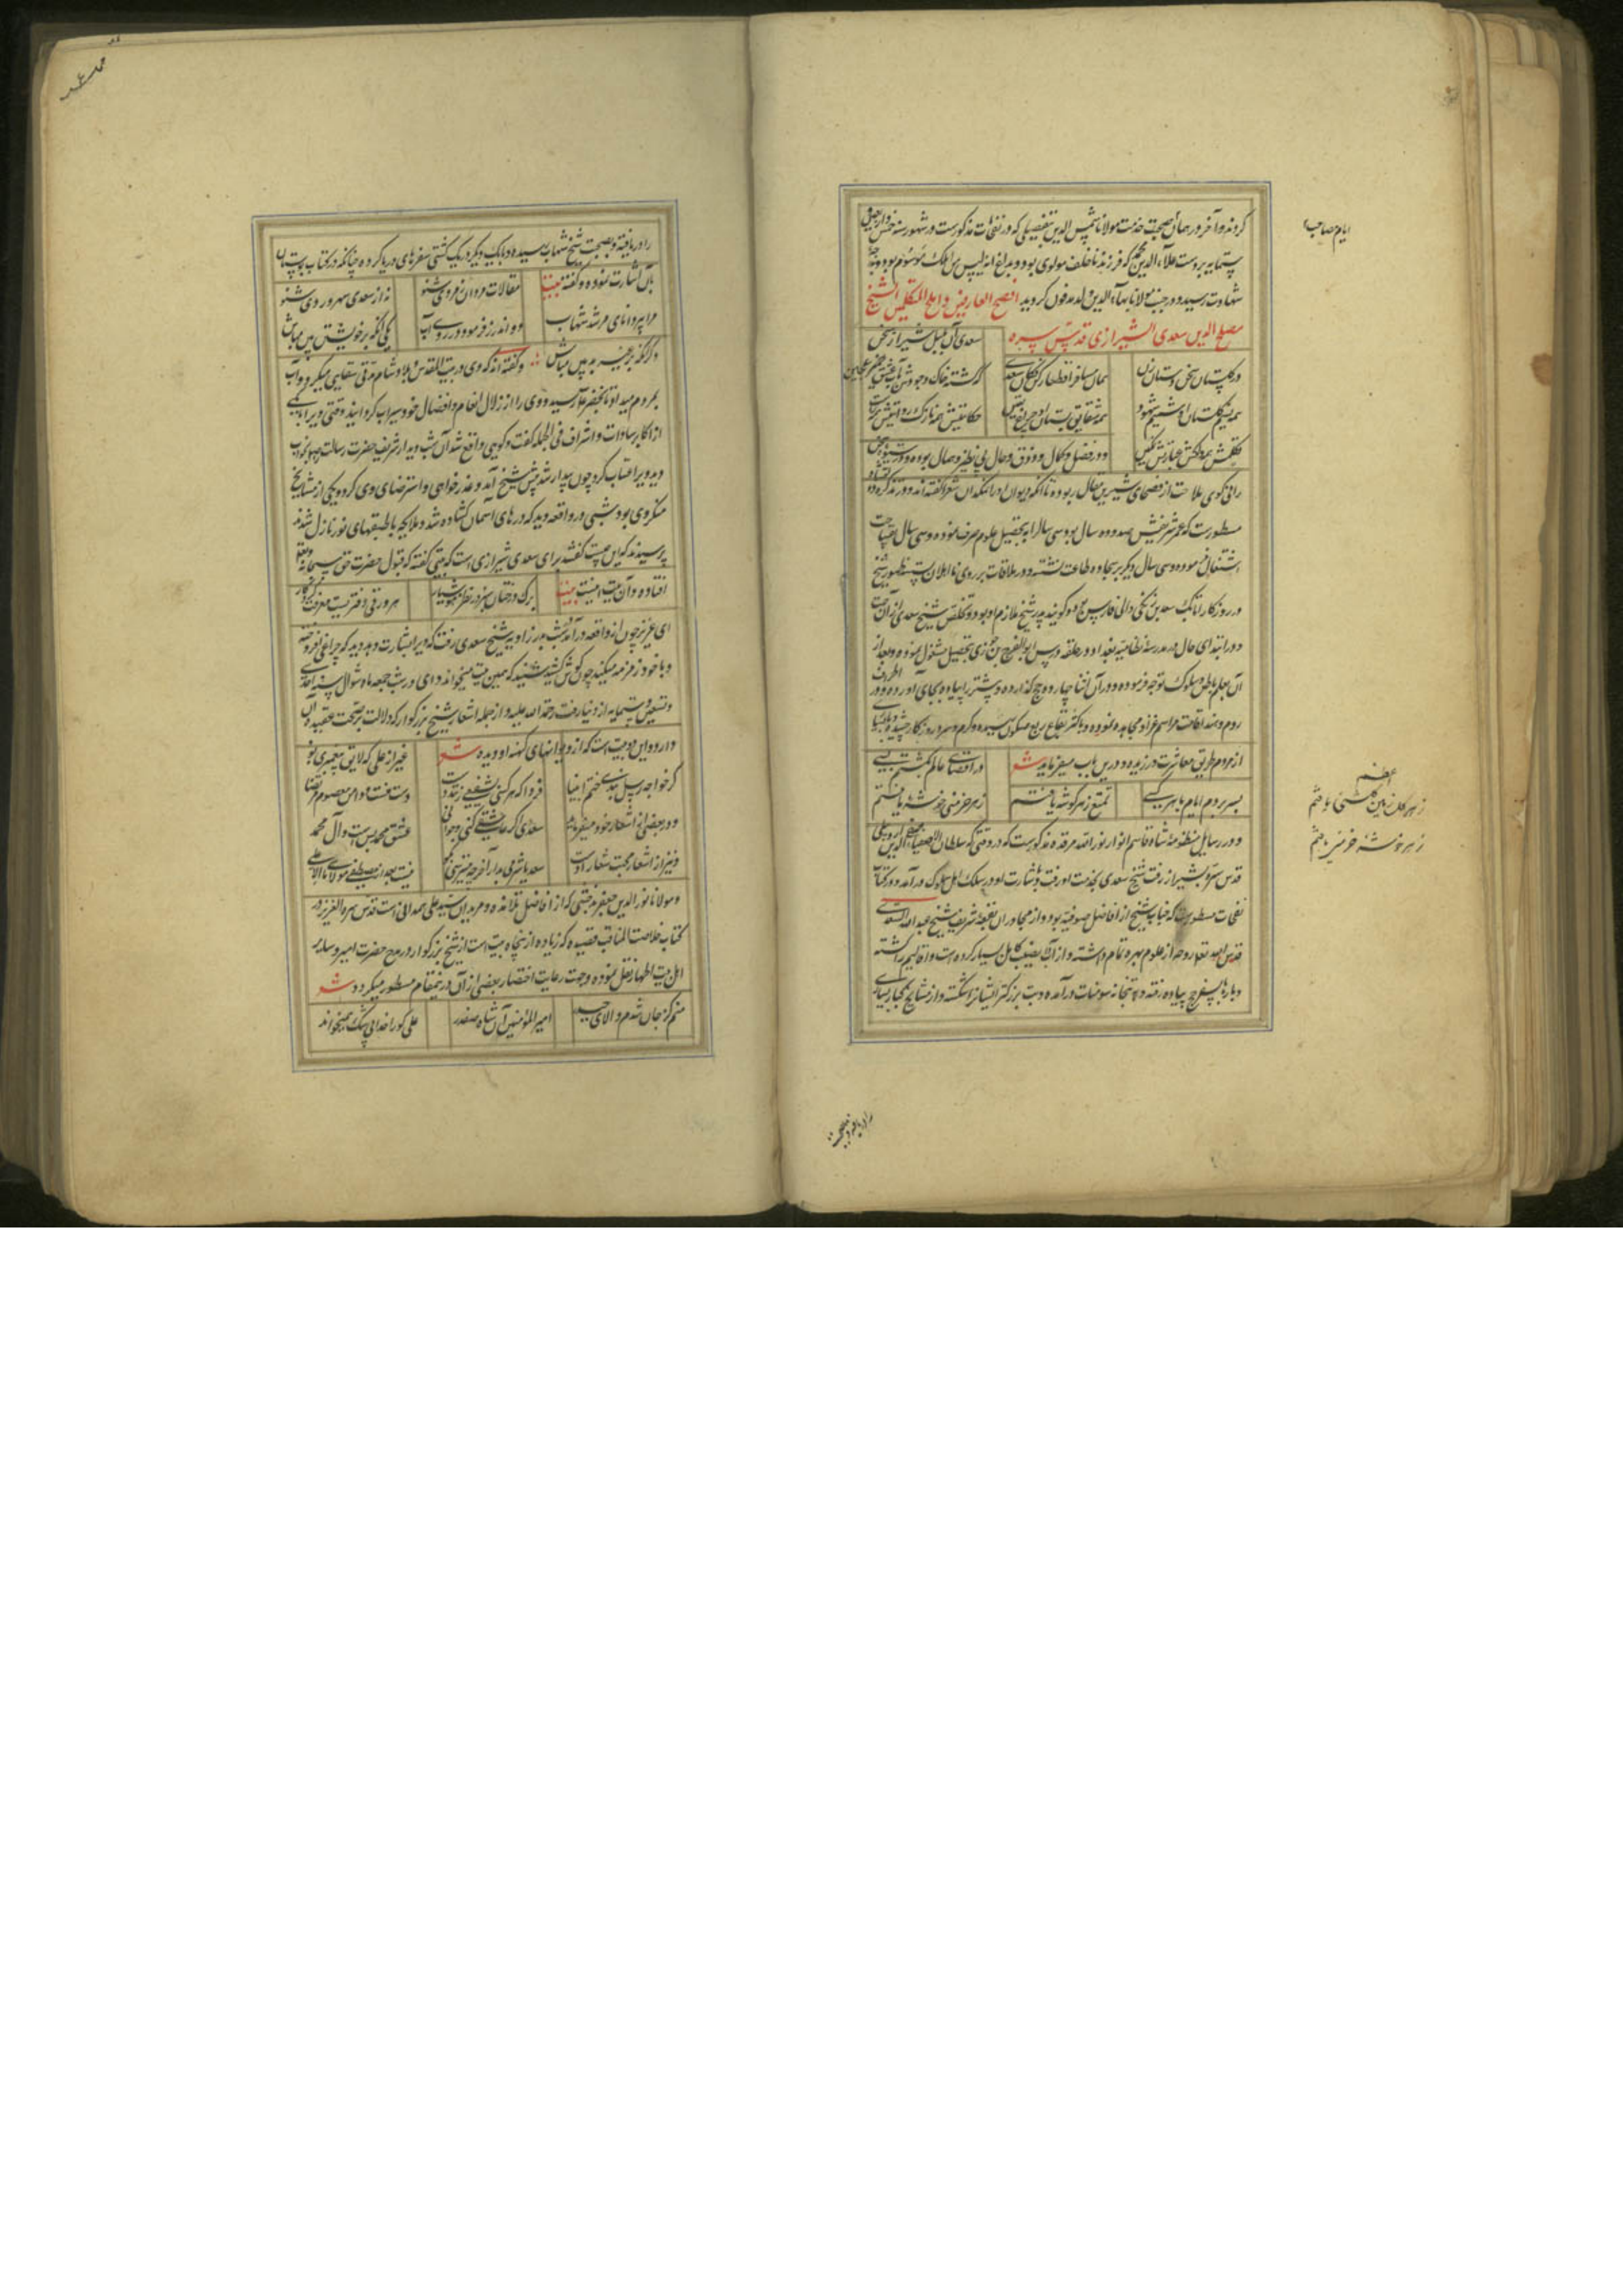 کردند و آخر در همان صحبت خدمت مولانا شمس الدین بتفصیلی که در نفحات مذکورست در شهور سنه خمس و اربعین
ستمایه بر دست علاء الدین محمد که فرزند ناخلف مولوی بود و بداغ انه لیس من اهلک موسوم بود
شهادت رسید و در جنب مولانا بهاء الدین ولد مدفون کردید افصح العارفین و املح المتکلمین الشیخ
مصلح الدین سعدی الشیرازی قدس سره
سعدی آن بلبل شیراز سخن
در کلستان سخن دستان زن
و در فضل و کمال و ذوق و حال بی نظیر و همال بوده و در شیوه سخن
رانی کوی ملاحت از فصحای شیرین مقال ربوده تا انکه دیوان او را نمکدان شعرا کفته اند و در تذکره
مسطورست که عمر شریفش صد و ده سال بود سی سال را بتحصیل علوم صرف نموده و سی سال بسیاحت
اشتغال فرموده و سی سال دیکر بر سجاده طاعت نشسته و در ملاقات بر روی نااهلان بسته ظهور شیخ
در روزکار اتابک سعد بن زنکی والی فارس بود و کویند پدر شیخ ملازم او بود و تخلص شیخ سعدی از آن جهت
و در ابتدای حال در مدرسه نظامیه بغداد در حلقه درس ابو الفرج بن جوزی بتحصیل مشغول نموده و بعد از
آن بعلم باطن و سلوک توجه فرموده و در آن اثنا چهارده حج کذارده و پیشتر را پیاده بجای آورده و در اطراف
روم و هند اقامت مراسم غزا و مجاهده نموده و باکثر بقاع ربع مسکون رسیده و کرم و سرد روزکار چشیده و با بسیاری
از مردم طریق معاشرت ورزیده و درین باب میفرماید شعر
در اقصای عالم بکشتم بسی
بسر بردم ایام با هر کسی
تمتع ز هر کوشه یافتم
ز هر خرمنی خوشه یافتم
و در رسایل منظومه شاه قاسم انوار نور الله مرقده مذکورست که در وقتی که سلطان الاصفیا صفی الدین اردبیلی
قدس سره بشیراز رفت شیخ سعدی بخدمت او رفت و باشارت او در سلک اهل سلوک در آمد و در کتاب
نفحات مسطورست که جناب شیخ از افاضل صوفیه بود و از مجاوران بقعه شریف شیخ عبد الله
قدس الله تعالی روحه از علوم بهره تمام داشته و از آداب نصیب کامل بسیار کرده است و اقالیم را کشته
و بارها بسفر حج پیاده رفته و به بتخانه سومنات درآمده و بت بزرکتر ایشانرا شکسته و از مشایخ کبار بسیاری
را دریافته و بصحبت شیخ شهاب
ایام صاحب
ز هر خوشه خرمنی یافتم
را دریافته و بصحبت شیخ شهاب رسیده و با یک دیکر در یک کشتی سفرهای دریا کرده چنانکه در کتاب بوستان
بآن اشارت نموده و کفته بیت
مقالات مردان ز مردی شنو
نه از سعدی از سهروردی شنو
مرا پیر دانای مرشد شهاب
دو اندرز فرمود بر روی آب
یکی آنکه بر خویش خود بین مباش
دکر آنکه بر غیر بدبین مباش و کفته اند که وی در بیت القدس و بلاد شام مدتی سقایی میکرد و آب
بمردم میداد تا بخضر علیه السلام رسید و وی را از زلال انعام و افضال خود سیراب کردانید وقتی ویرا با یکی
از اکابر سادات و اشراف فی الجمله کفت و کویی واقع شد آن شب دیدار شریف حضرت رسالت را بخواب
دید ویرا عتاب کرد چون بیدار شد پیش شیخ آمد و عذرخواهی و استرضای وی کرد و یکی از مشایخ
منکر وی بود شبی در واقعه دید که درهای آسمان کشاده شد و ملایکه با طبقهای نور نازل شدند
پرسید که این چیست کفتند برای سعدی شیرازی است که بیتی کفته که قبول حضرت حق سبحانه و تعالی
افتاده و آن بیت اینست بیت
برک درختان سبز در نظر هوشیار
هر ورقی دفتریست معرفت کردکار
ای عزیز چون از واقعه درآمد شب بدر زاویه شیخ سعدی رفت که ویرا بشارت دهد دید که چراغی افروخته
و با خود زمزمه میکند چون کوش کشید شنید که همین بیت میخواند وی در شب جمعه ماه شوال سنه احدی
و تسعین و ستمایه از دنیا رفت رحمة الله علیه و از جمله اشعار شیخ بزرکوار که دلالت بر صحت عقیده آن
دارد و این دو بیت است که از دیوانهای کهنه او دیده شعر
غیر از علی که لایق پیغمبری بدی
کر خواجه رسل نبدی ختم انبیا
فردا که هر کسی بشفیعی زنند دست
دست منست و دامن معصوم مرتضا
و در بعضی از اشعار خود میفرماید
سعدی اکر عاشقی کنی و جوانی
عشق محمد بس است و آل محمد
و نیز از اشعار محبت شعار اوست
و مولانا نور الدین جعفر بدخشی که از افاضل تلامذه و مریدان سید علی همدانی است قدس سره العزیز در
کتاب خلاصت المناقب قصیده که زیاده از پنجاه بیت است از شیخ بزرکوار در مدح حضرت امیر و سایر
اهل بیت اطهار نقل نموده و جهت رعایت اختصار بعضی از آن درینمقام مسطور میکردد شعر
منم کز جان شدم مولای حیدر
امیر المؤمنین آن شاه صفدر
علی کو را خدا بی شک ولی خواند